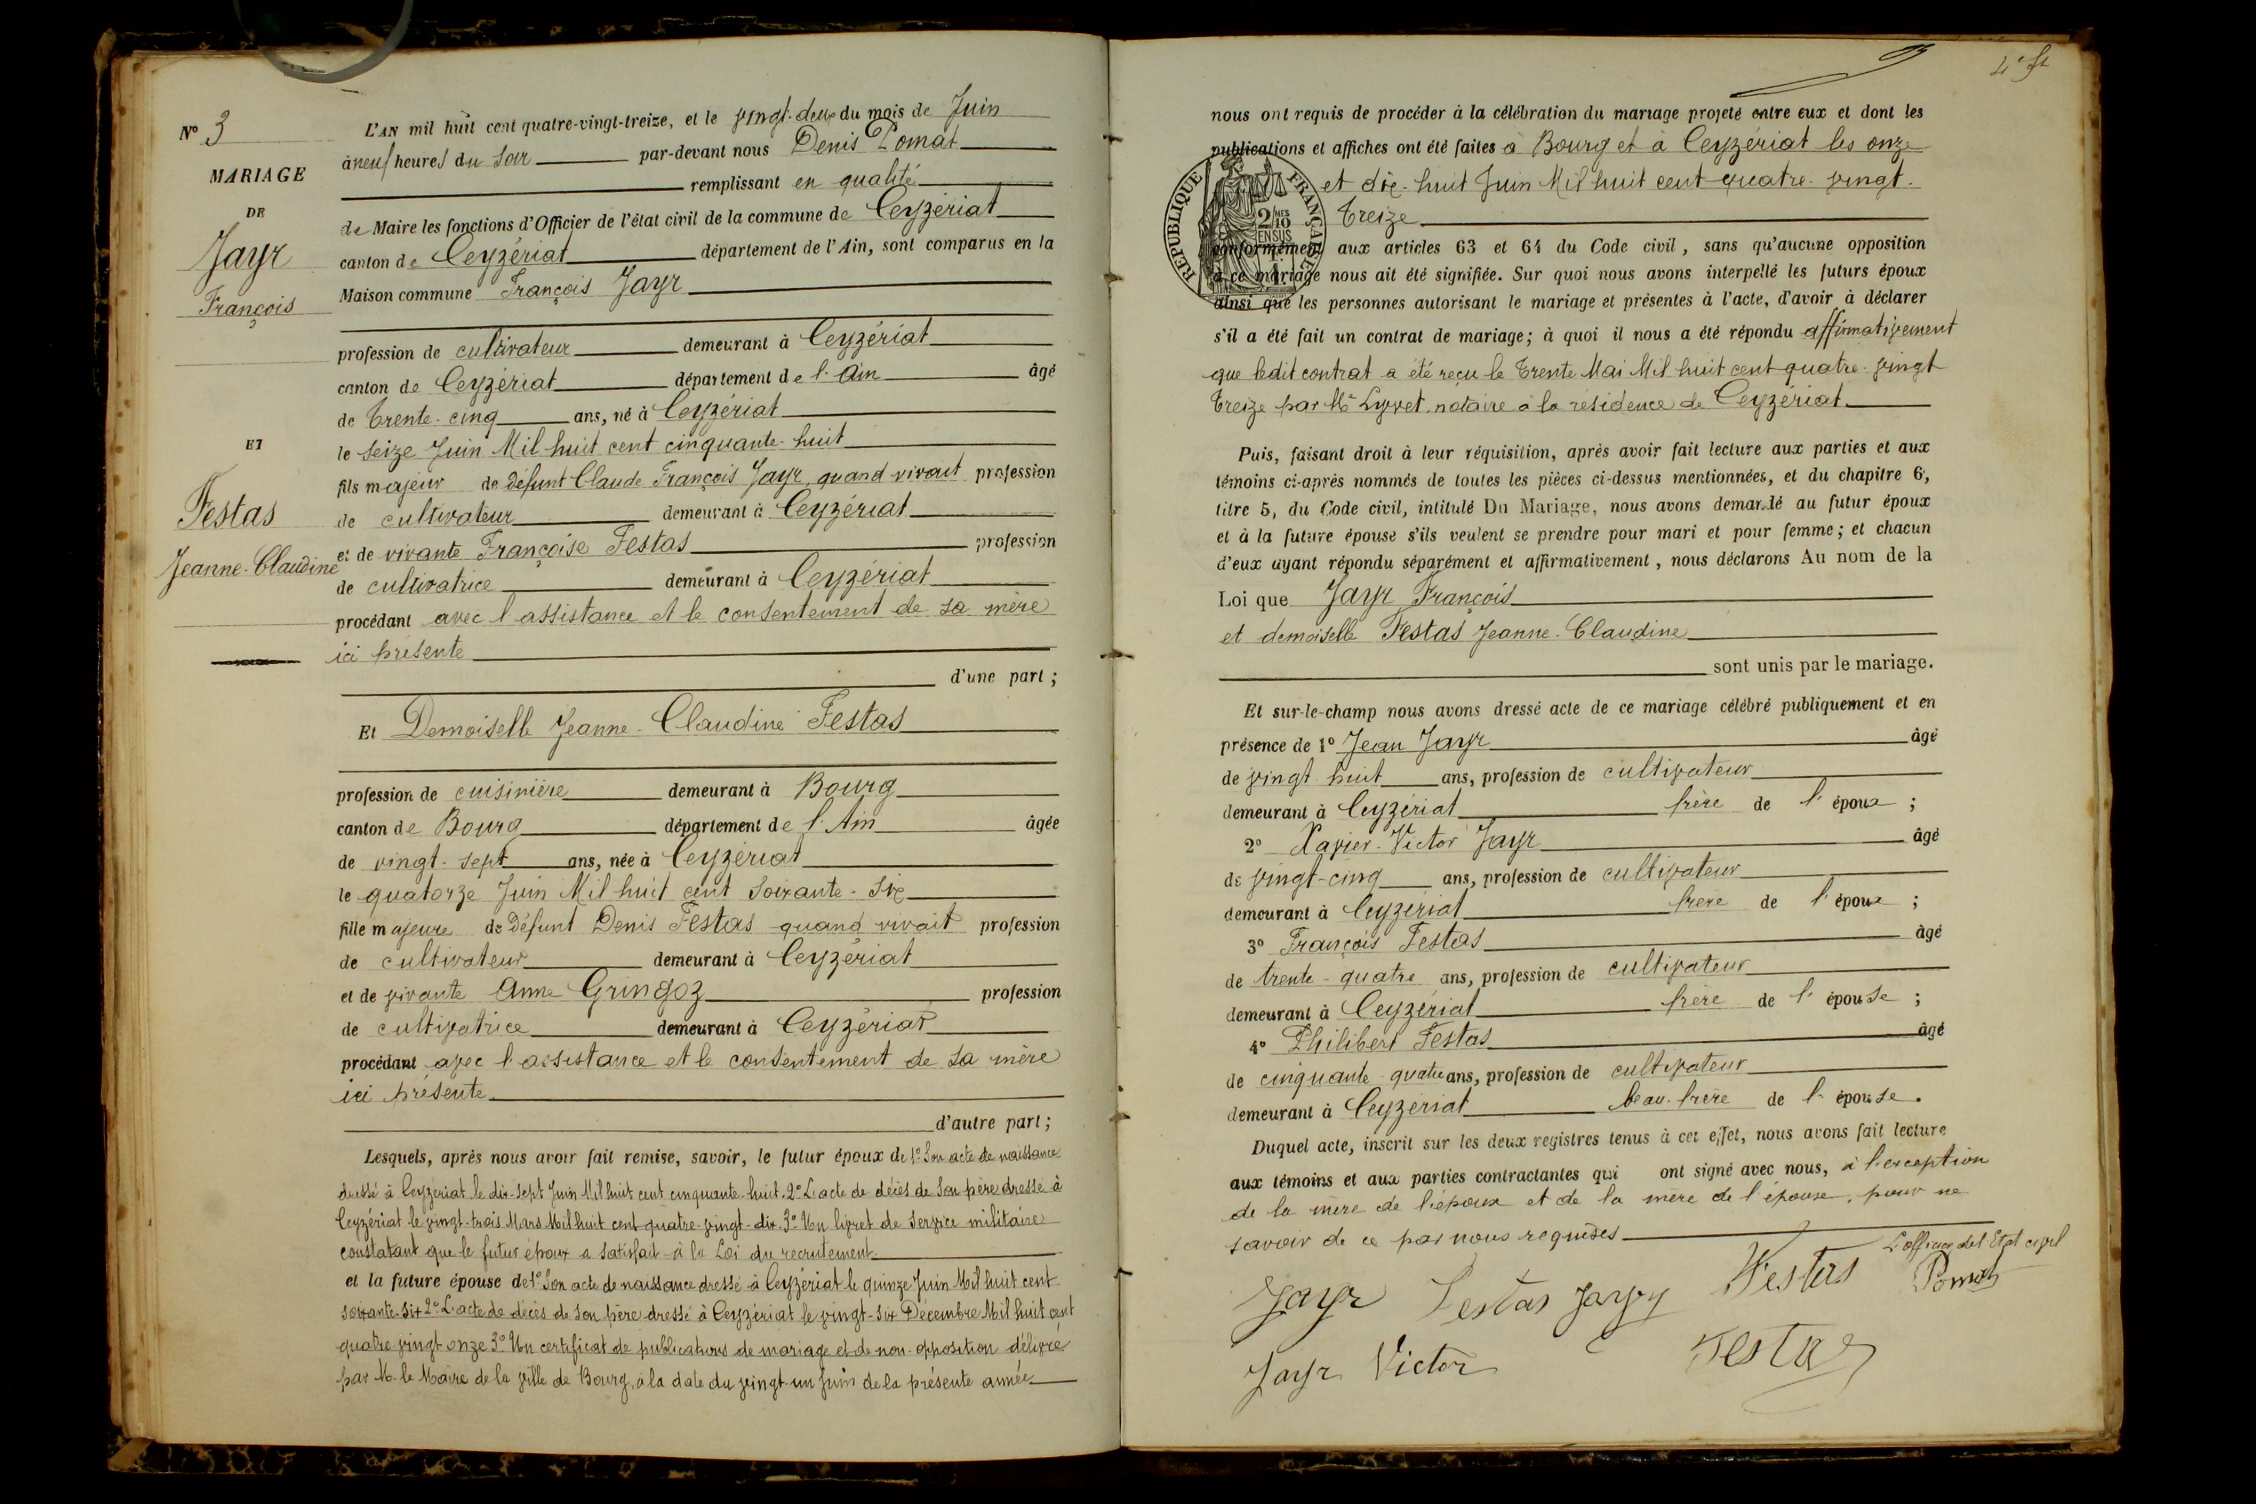 N° 3
MARIAGE
DE
Jayr
François
ET
Festas
Jeanne-Claudine
L'AN mil huit cent quatre-vingt-treize, et le vingt-deux du mois de Juin
à neuf heures du soir par-devant nous Denis Pomat
remplissant en qualité
de Maire les fonctions d'Officier de l'état civil de la commune de Ceyzériat
canton de Ceyzériat département de l'Ain, sont comparus en la
Maison commune François Jayr
profession de cultivateur demeurant à Ceyzériat
canton de Ceyzériat département de l'Ain âgé
de trente-cinq ans, né à Ceyzériat
le seize Juin Mil huit cent cinquante-huit
fils majeur de défunt Claude François Jayr, quand vivait profession
de cultivateur demeurant à Ceyzériat
et de vivante Françoise Festas profession
de cultivatrice demeurant à Ceyzériat
procédant avec l'assistance et le consentement de sa mère
ici présente
d'une part ;
Et Demoiselle Jeanne-Claudine Festas
profession de cuisinière demeurant à Bourg
canton de Bourg département de l'Ain âgée
de vingt-sept ans, née à Ceyzériat
le quatorze Juin Mil huit cent soixante-six
fille majeure de défunt Denis Festas quand vivait profession
de cultivateur demeurant à Ceyzériat
et de vivante Anne Gringoz profession
de cultivatrice demeurant à Ceyzériat
procédant avec l'assistance et le consentement de sa mère
ici présente
d'autre part ;
Lesquels, après nous avoir fait remise, savoir, le futur époux de 1° Son acte de naissance
dressé à Ceyzériat le dix-sept Juin Mil huit cent cinquante-huit. 2° L'acte de décès de son père dressé à
Ceyzériat le vingt-trois Mars Mil huit cent quatre-vingt-dix. 3° Un livret de service militaire
constatant que le futur époux a satisfait à la Loi du recrutement
et la future épouse de 1° Son acte de naissance dressé à Ceyzériat le quinze Juin Mil huit cent
soixante-six 2° L'acte de décès de son père dressé à Ceyzériat le vingt-six Décembre Mil huit cent
quatre vingt onze 3° Un certificat de publications de mariage et de non-opposition délivré
par M. le Maire de la ville de Bourg, à la date du vingt-un Juin de la présente année
nous ont requis de procéder à la célébration du mariage projeté entre eux et dont les
publications et affiches ont été faites à Bourg et à Ceyzériat les onze
et dix-huit Juin Mil huit cent quatre-vingt-
treize
RÉPUBLIQUE FRANÇAISE
2/10 MES
EN SUS
conformément aux articles 63 et 64 du Code civil, sans qu'aucune opposition
à ce mariage nous ait été signifiée. Sur quoi nous avons interpellé les futurs époux
ainsi que les personnes autorisant le mariage et présentes à l'acte, d'avoir à déclarer
s'il a été fait un contrat de mariage; à quoi il nous a été répondu affirmativement
que ledit contrat a été reçu le trente Mai Mil huit cent quatre-vingt
treize par Me Lyvet, notaire à la résidence de Ceyzériat
Puis, faisant droit à leur réquisition, après avoir fait lecture aux parties et aux
témoins ci-après nommés de toutes les pièces ci-dessus mentionnées, et du chapitre 6,
titre 5, du Code civil, intitulé Du Mariage, nous avons demandé au futur époux
et à la future épouse s'ils veulent se prendre pour mari et pour femme; et chacun
d'eux ayant répondu séparément et affirmativement, nous déclarons Au nom de la
Loi que Jayr François
et demoiselle Festas Jeanne-Claudine
sont unis par le mariage.
Et sur-le-champ nous avons dressé acte de ce mariage célébré publiquement et en
présence de 1° Jean Jayr âgé
de vingt huit ans, profession de cultivateur
demeurant à Ceyzériat frère de l'époux ;
2° Xavier-Victor Jayr âgé
de vingt-cinq ans, profession de cultivateur
demeurant à Ceyzériat frère de l'époux ;
3° François Festas âgé
de trente-quatre ans, profession de cultivateur
demeurant à Ceyzériat frère de l'épouse ;
4° Philibert Festas âgé
de cinquante-quatre ans, profession de cultivateur
demeurant à Ceyzériat beau-frère de l'épouse.
Duquel acte, inscrit sur les deux registres tenus à cet effet, nous avons fait lecture
aux témoins et aux parties contractantes qui ont signé avec nous, à l'exception
de la mère de l'époux et de la mère de l'épouse, pour ne
savoir de ce par nous requises
L'officier de l'Etat civil
Jayr Festas Jayr Festas Pomat
Jayr Victor Festas